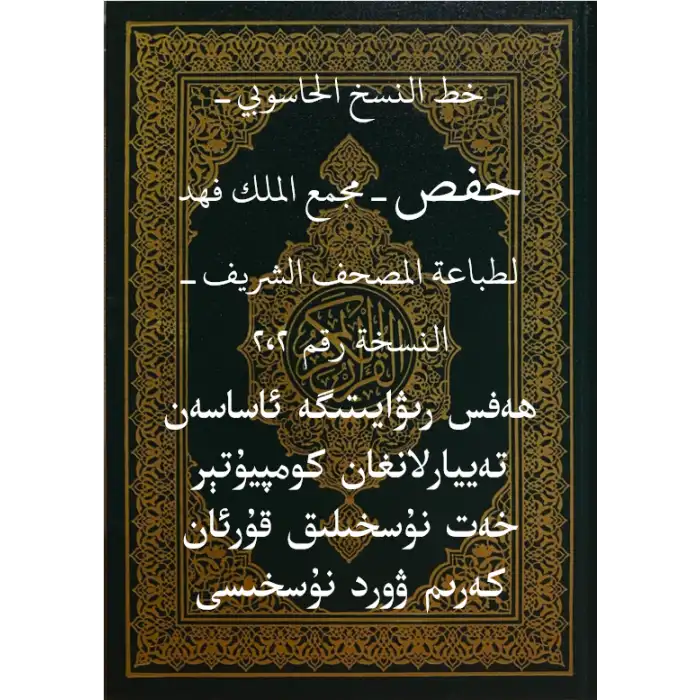 خط النسخ الحاسوبي ـ
حفص ـ مجمع الملك فهد
لطباعة المصحف الشريف ـ
النسخة رقم ٢،٢
القرآن الكريم
ھەفس رىۋايىتىگە ئاساسەن
تەييارلانغان كومپيۇتېر
خەت نۇسخىلىق قۇرئان
كەرىم ۋورد نۇسخىسى